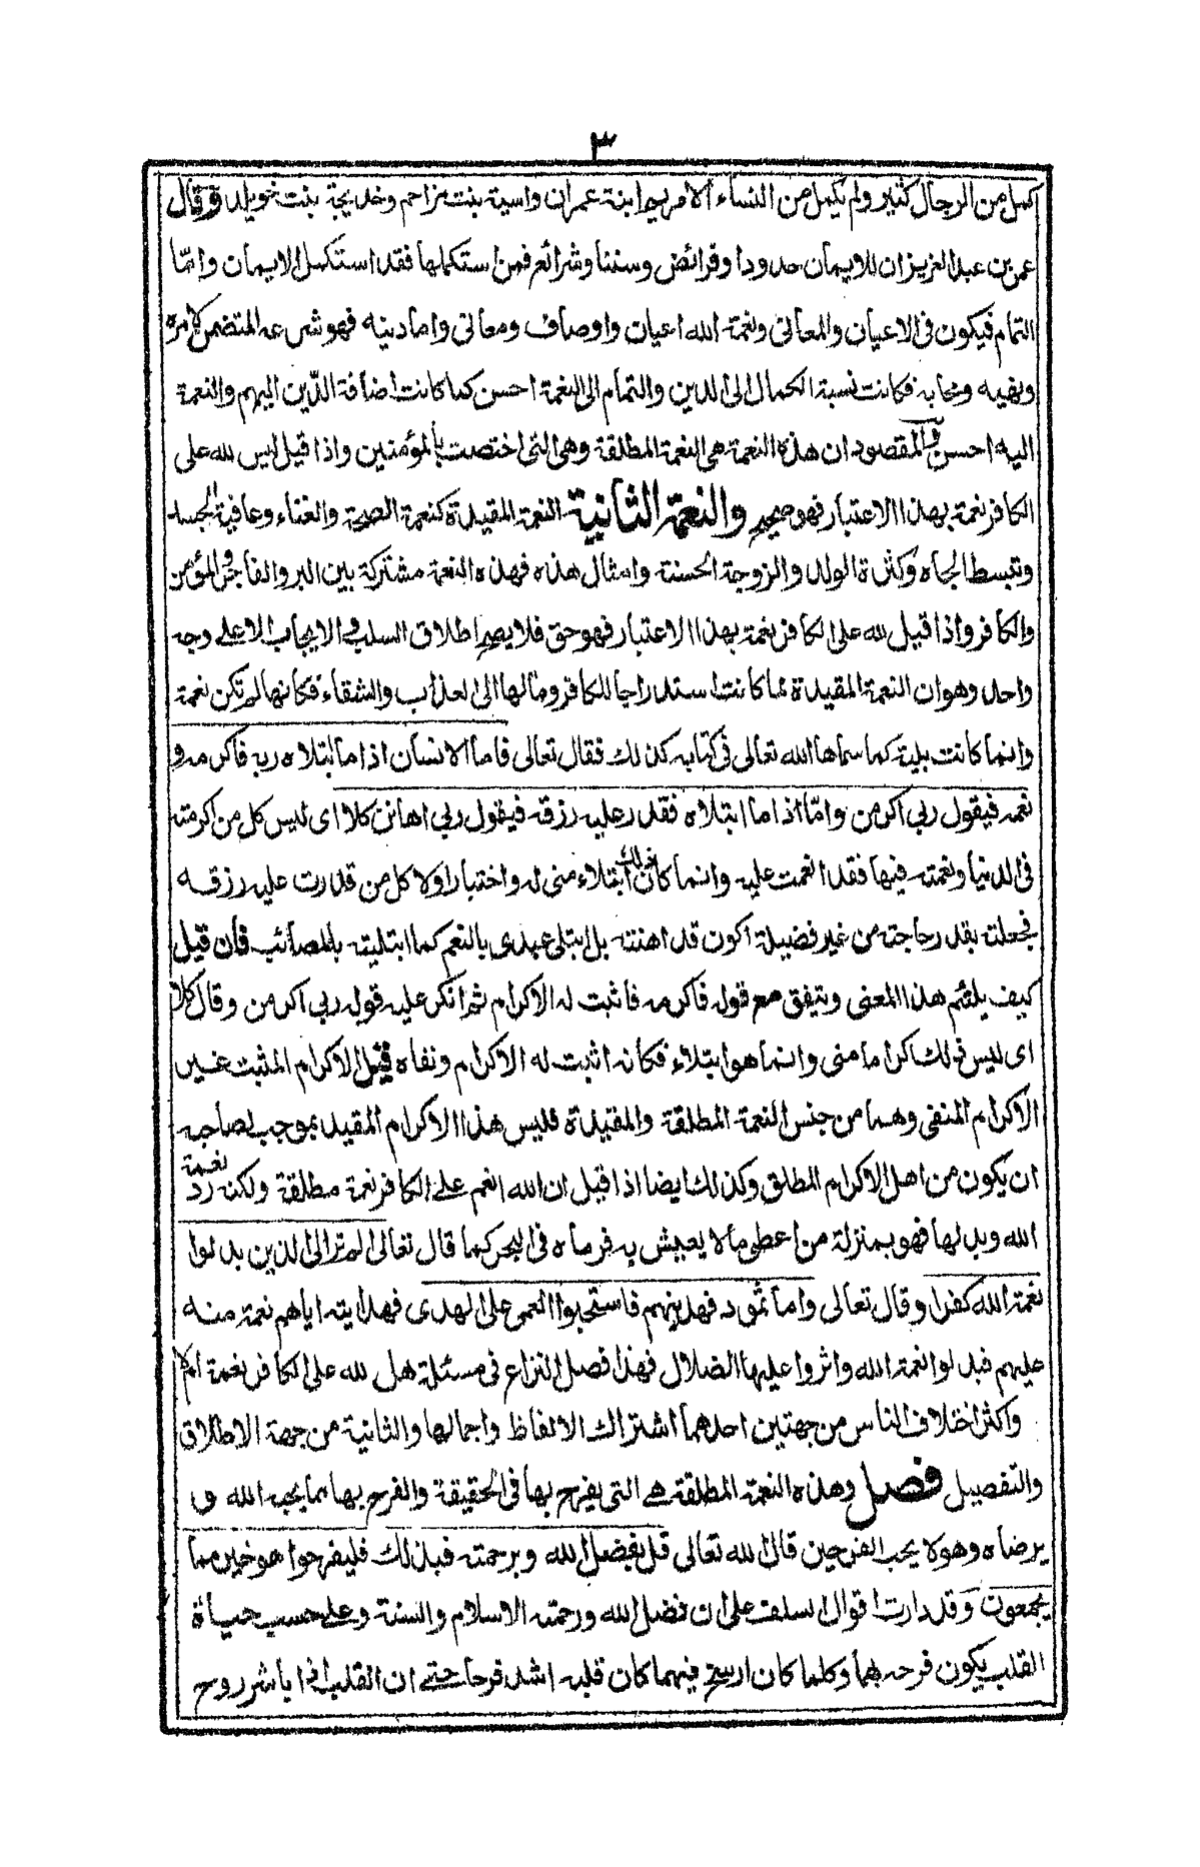 ٣
كمل من الرجال كثير ولم يكمل من النساء الا مريم ابنة عمران واسية بنت مزاحم وخديجة بنت خويلد وقال
عمر بن عبد العزيز ان للايمان حدودا وفرائض وسننا وشرائع فمن استكملها فقد استكمل الايمان واما
التمام فيكون فى الاعيان والمعانى ونعمة الله اعيان واوصاف ومعانى واما دينه فهو شرعه المتضمن لامره
ونهيه ومحابه فكانت نسبة الكمال الى الدين والتمام الى النعمة احسن كما كانت اضافة الدّين اليهم والنعمة
اليه احسن والمقصود ان هذه النعمة هى النعمة المطلقة وهى التى اختصت بالمؤمنين واذا قيل ليس لله على
الكافر نعمة بهذا الاعتبار فهو صحيح والنعمة الثانية النعمة المقيدة كنعمة الصحة والغناء وعافية الجسد
وتبسط الجاه وكثرة الولد والزوجة الحسنة وامثال هذه فهذه النعمة مشتركة بين البر والفاجر والمؤمن
والكافر واذا قيل لله على الكافر نعمة بهذا الاعتبار فهو حق فلا يصح اطلاق السلب و الايجاب الا على وجه
واحد وهو ان النعمة المقيدة لما كانت استدراجا للكافر ومالها الى العذاب والشقاء فكانها لم تكن نعمة
وانما كانت بلية كما سماها الله تعالى فى كتابه كذلك فقال تعالى فاما الانسان اذا ما ابتلاه ربه فاكرمه و
نعمه فيقول ربي اكرمن وامّا اذا ما ابتلاه فقدر عليه رزقه فيقول ربي اهانن كلا اى ليس كل من اكرمته
فى الدنيا ونعمته فيها فقد انعمت عليه وانما كان ذلك ابتلاء منى له واختبارا ولا كل من قدرت عليه رزقه
فجعلته بقدر حاجته من غير فضيلة اكون قد اهنته بل ابتلى عبدى بالنعم كما ابتليته بالمصائب فان قيل
كيف يلتئم هذا المعنى ويتفق مع قوله فاكرمه فاثبت له الاكرام ثم انكر عليه قوله ربي اكرمن وقال كلا
اى ليس ذلك اكراما منى وانما هو ابتلاء فكأنه اثبت له الاكرام ونفاه قيل الاكرام المثبت غير
الاكرام المنفى وهما من جنس النعمة المطلقة والمقيدة فليس هذا الاكرام المقيد بموجب لصاحبه
ان يكون من اهل الاكرام المطلق وكذلك ايضا اذا قيل ان الله انعم على الكافر نعمة مطلقة ولكنه رد نعمة
الله وبدلها فهو بمنزلة من اعطى مالا يعيش به فرماه فى البحر كما قال تعالى الم تر الى الذين بدلوا
نعمة الله كفرا وقال تعالى واما ثمود فهدينهم فاستحبوا العمى على الهدى فهدايته اياهم نعمة منه
عليهم فبدلوا نعمة الله واثروا عليها الضلال فهذا فصل النزاع فى مسئلة هل لله على الكافر نعمة ام لا
واكثر اختلاف الناس من جهتين احدهما اشتراك الالفاظ واجمالها والثانية من جهة الاطلاق
والتفصيل فصل وهذه النعمة المطلقة هى التى يفرح بها فى الحقيقة والفرح بها مما يحبه الله و
يرضاه وهو لا يحب الفرحين قال الله تعالى قل بفضل الله وبرحمته فبذلك فليفرحوا هو خير مما
يجمعون وقد دارت اقوال السلف على ان فضل الله ورحمته الاسلام والسنة وعلى حسب حياة
القلب يكون فرحه بهما وكلما كان ارسخ فيهما كان قلبه اشد فرحا حتى ان القلب اذا باشر روح